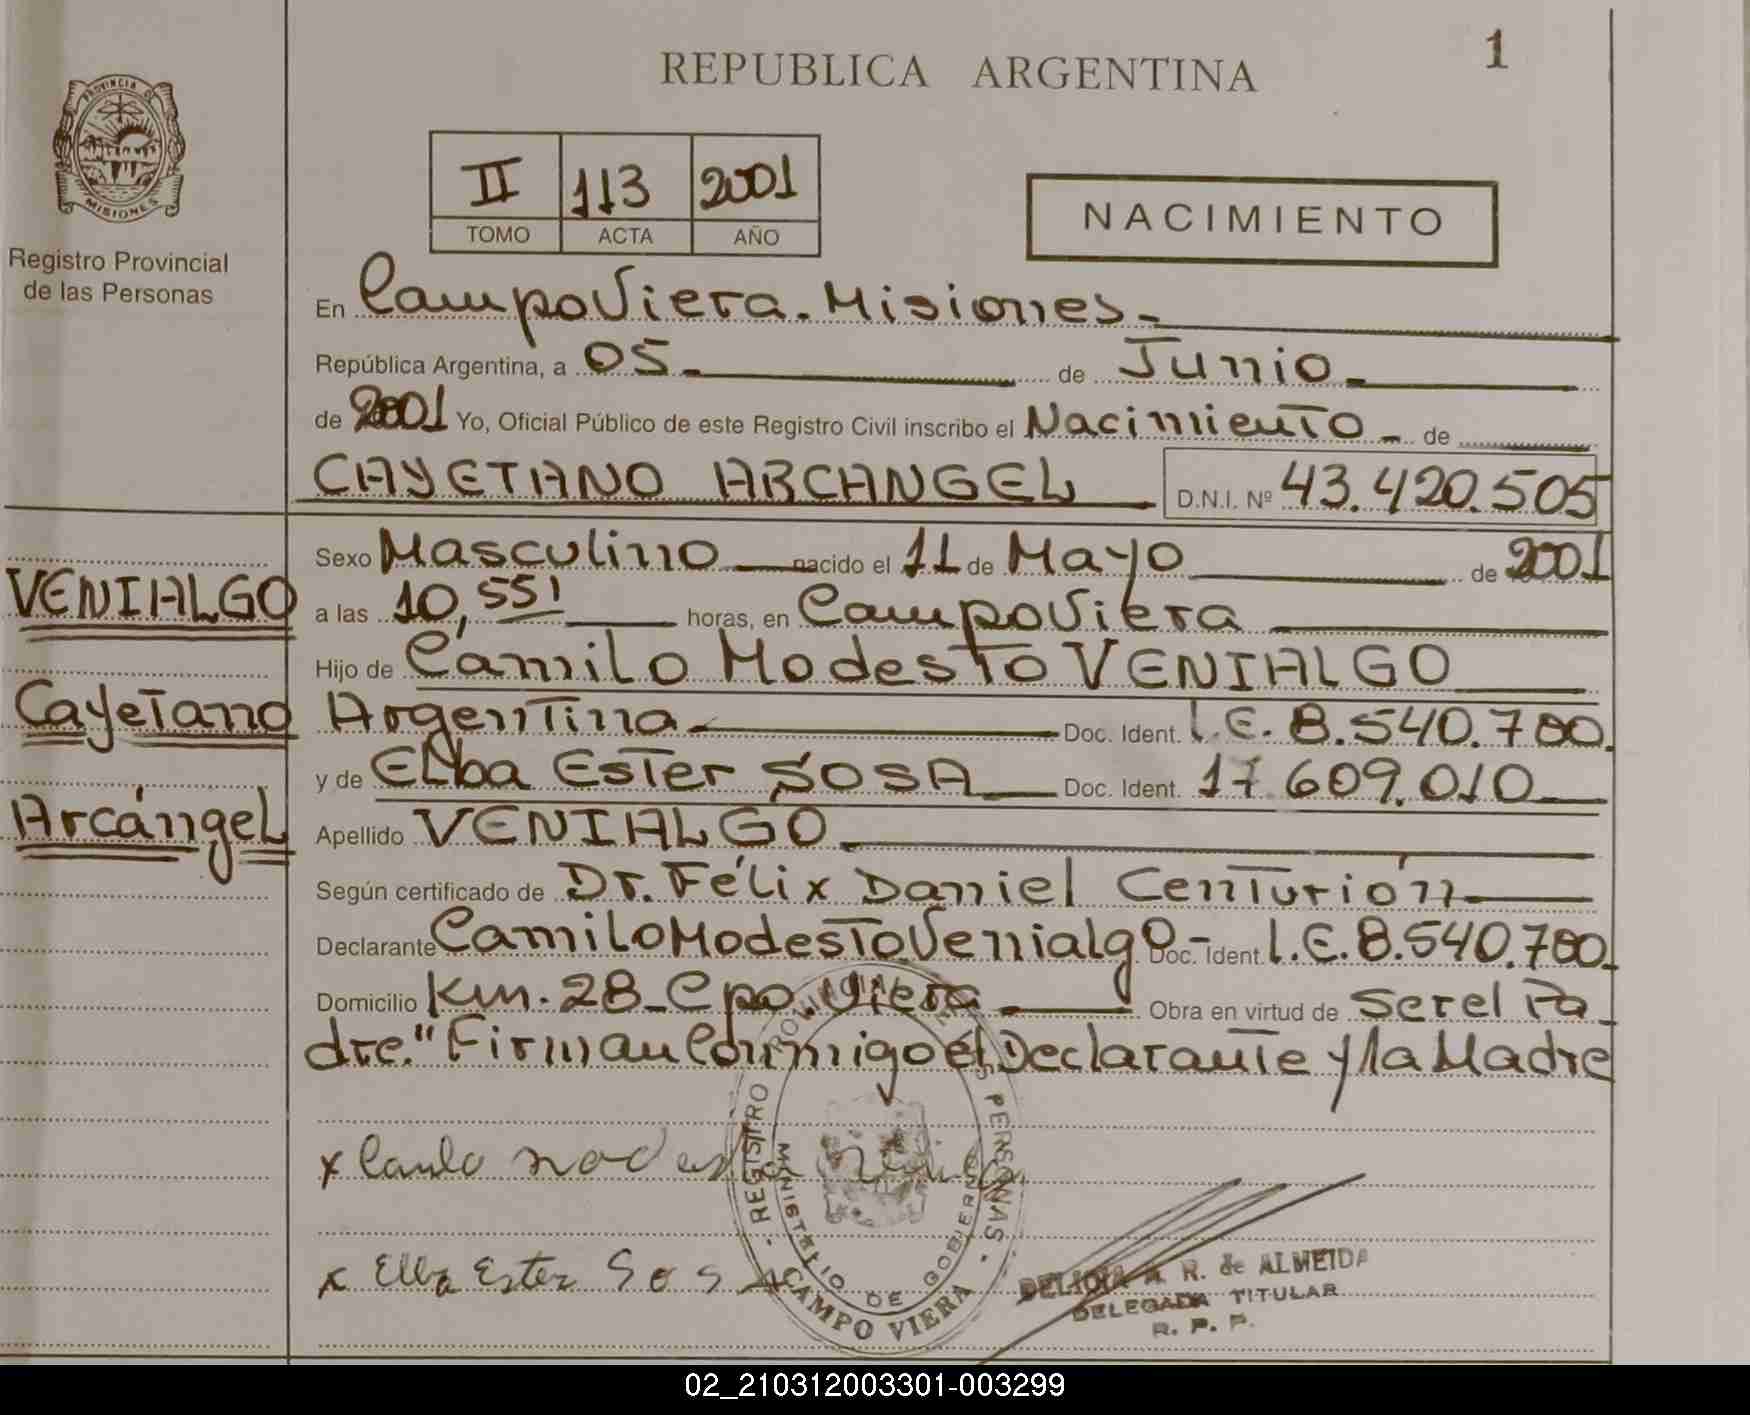 REPUBLICA ARGENTINA
1
PROVINCIA DE
MISIONES
Registro Provincial
de las Personas
II 113 2001
TOMO ACTA AÑO
NACIMIENTO
En Campo Viera. Misiones.
República Argentina, a 05 de Junio
de 2001 Yo, Oficial Público de este Registro Civil inscribo el Nacimiento de
CAYETANO ARCANGEL D.N.I. Nº 43.420.505
Sexo Masculino nacido el 11 de Mayo de 2001
VENIALGO
a las 10,55' horas, en Campo Viera
Hijo de Camilo Modesto VENIALGO
Cayetano
Argentina Doc. Ident. L.E. 8.540.780.
y de Elba Ester SOSA Doc. Ident. 17 609.010
Arcángel
Apellido VENIALGO
Según certificado de Dr. Félix Daniel Centurión
Declarante Camilo Modesto Venialgo - Doc. Ident. L.E. 8.540.780.
Domicilio Km. 28 - Cpo. Viera Obra en virtud de Ser el Pa
dre." Firman Conmigo el Declarante y la Madre
x
x Elba Ester Sosa
REGISTRO PERSONAS
MINISTERIO DE GOBIERNO
CAMPO VIERA
R. de ALMEIDA
DELEGADA TITULAR
R. P. P.
02_210312003301-003299